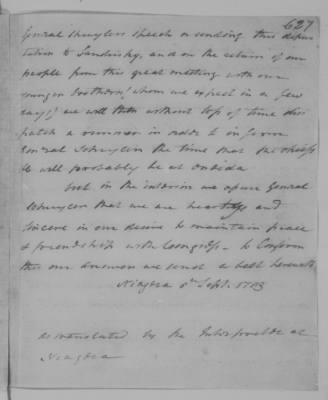 627
General Schuylers speech on sending this depu
tation to Sandusky, and on the return of our
people from this great meeting with our
younger brothers (whom we expect in a few
days) we will then without loss of time dis
patch a runner in order to inform
General Schuyler the time that the chiefs
will probably be at Oneida
but in the interim we assure General
Schuyler that we are hearty and
sincere in our desire to maintain peace
& friendship with Congress – to Confirm
this our answer we send a belt herewith
Niagara Sept. 1783
as translated by the Interpreter at
Niagara